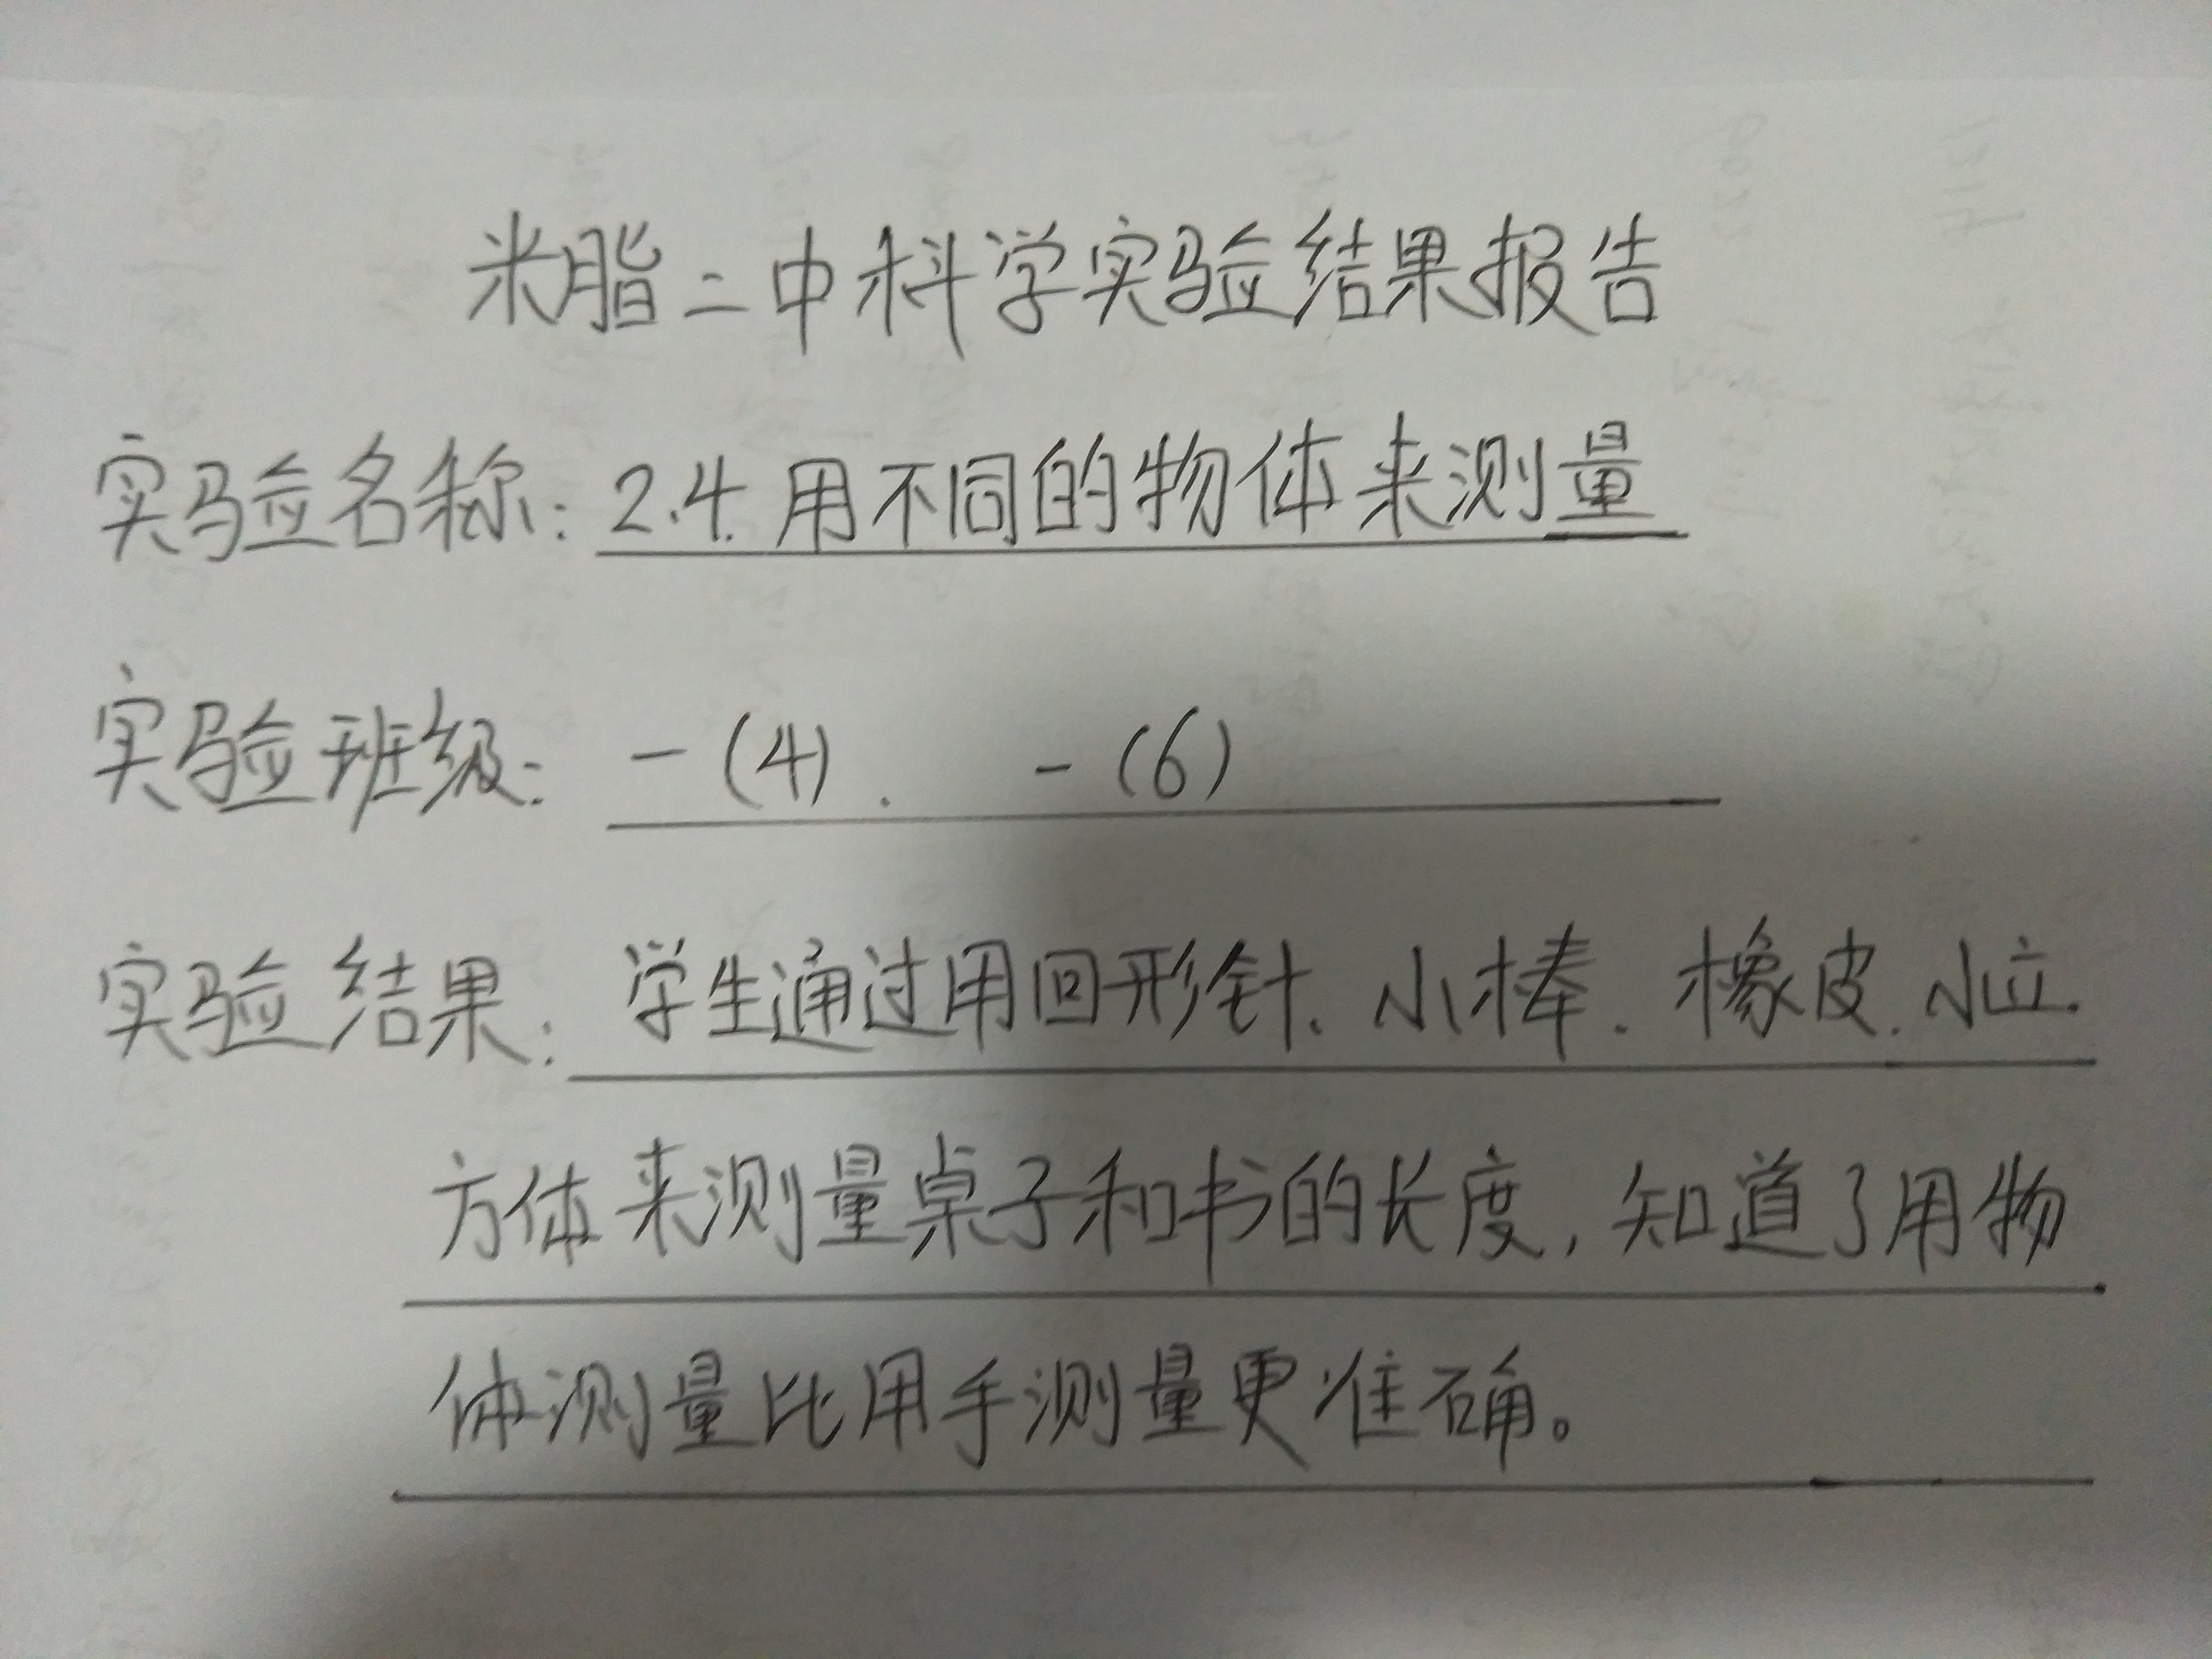 米脂二中科学实验结果报告
实验名称：2.4. 用不同的物体来测量
实验班级：一(4). 一(6)
实验结果：学生通过用回形针、小棒、橡皮、小立
方体来测量桌子和书的长度，知道了用物
体测量比用手测量更准确。